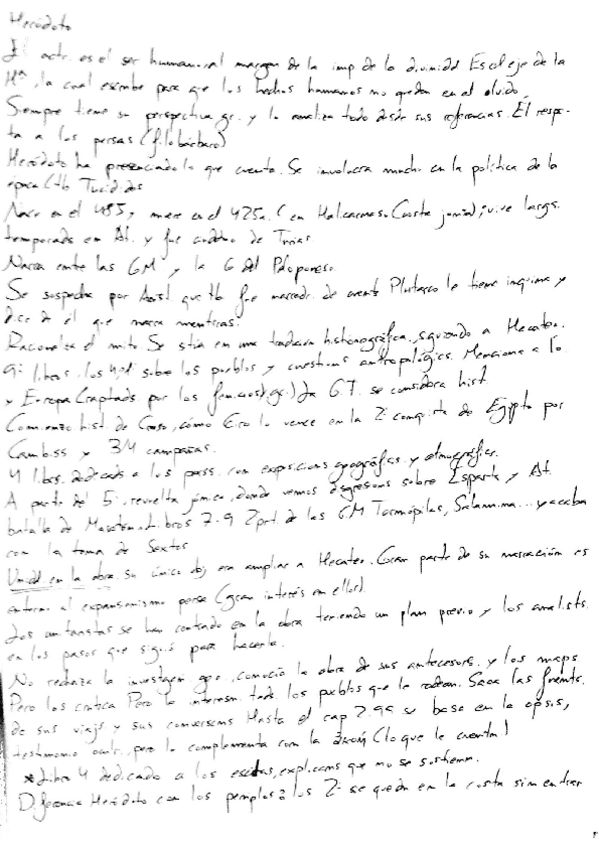 Heródoto
El actr. es el ser humano, al margen de la imp de la divinidd Es el eje de la
Hª, la cual escribe para que los hechos humanos no queden en el olvido.
Siempre tiene su perspectiva gr. y lo analiza todo desde sus referencias. Él respe-
ta a los persas (filobárbaro)
Heródoto ha presenciado lo que cuenta. Se involucra mucho en la política de la
época (tb Tucídides
Nace en el 485, muere en el 425a. (en Halicarnaso. Costa jonia); vive largs.
temporads en At. y fue de Turias
Narra entre las GM y la G del Peloponeso.
Se sospecha por Arist que tb fue narradr. de cuents Plutarco le tiene inquina y
dice de él que narra mentiras.
Racionaliza el mito Se sitúa en una tradición historiográfica, siguiendo a Hecateo.
9: libros, los 4 sobre los pueblos y cuestions antropológics. Menciona a Ío
y Europa (raptads por los fenicios) (gr.) La G.T. se considera hist.
Comienzo hist. de Creso, cómo Ciro lo vence en la 2: conquista de Egipto por
Cambiss y 3/4 campañas.
4 libs. dedicads a los perss. con exposicions geográfics. y etnográfics.
A partir del 5: revuelta jónica, donde vemos digresions sobre Esparta y At.
batalla de Maratón. Libros 7-9 2prt. de las GM Termópilas, Salamina... y acaban
con la toma de Sestos
Unidd en la obra: su único obj era ampliar a Hecateo. Gran parte de su narración es
entorno al expansionismo persa (gran interés en ellos).
Los unitarists se han centrado en la obra teniendo un plan previo y los analists.
en los pasos que siguió para hacerla.
No rechaza la investigan geo., conoció la obra de sus antecesors. y los maps
Pero los critica Pero le interesan tods los pueblos que le rodean. Saca las fuents.
de sus viajs y sus conversacns Hasta el cap 2.99 se basa en la opsis,
testimonio ocular, pero lo complementa con la (lo que le cuentan)
*Libro 4 dedicado a los escitas, explicacns que no se sostienen.
Diferencia Heródoto con los periplos: los 2: se quedan en la costa sin entrar